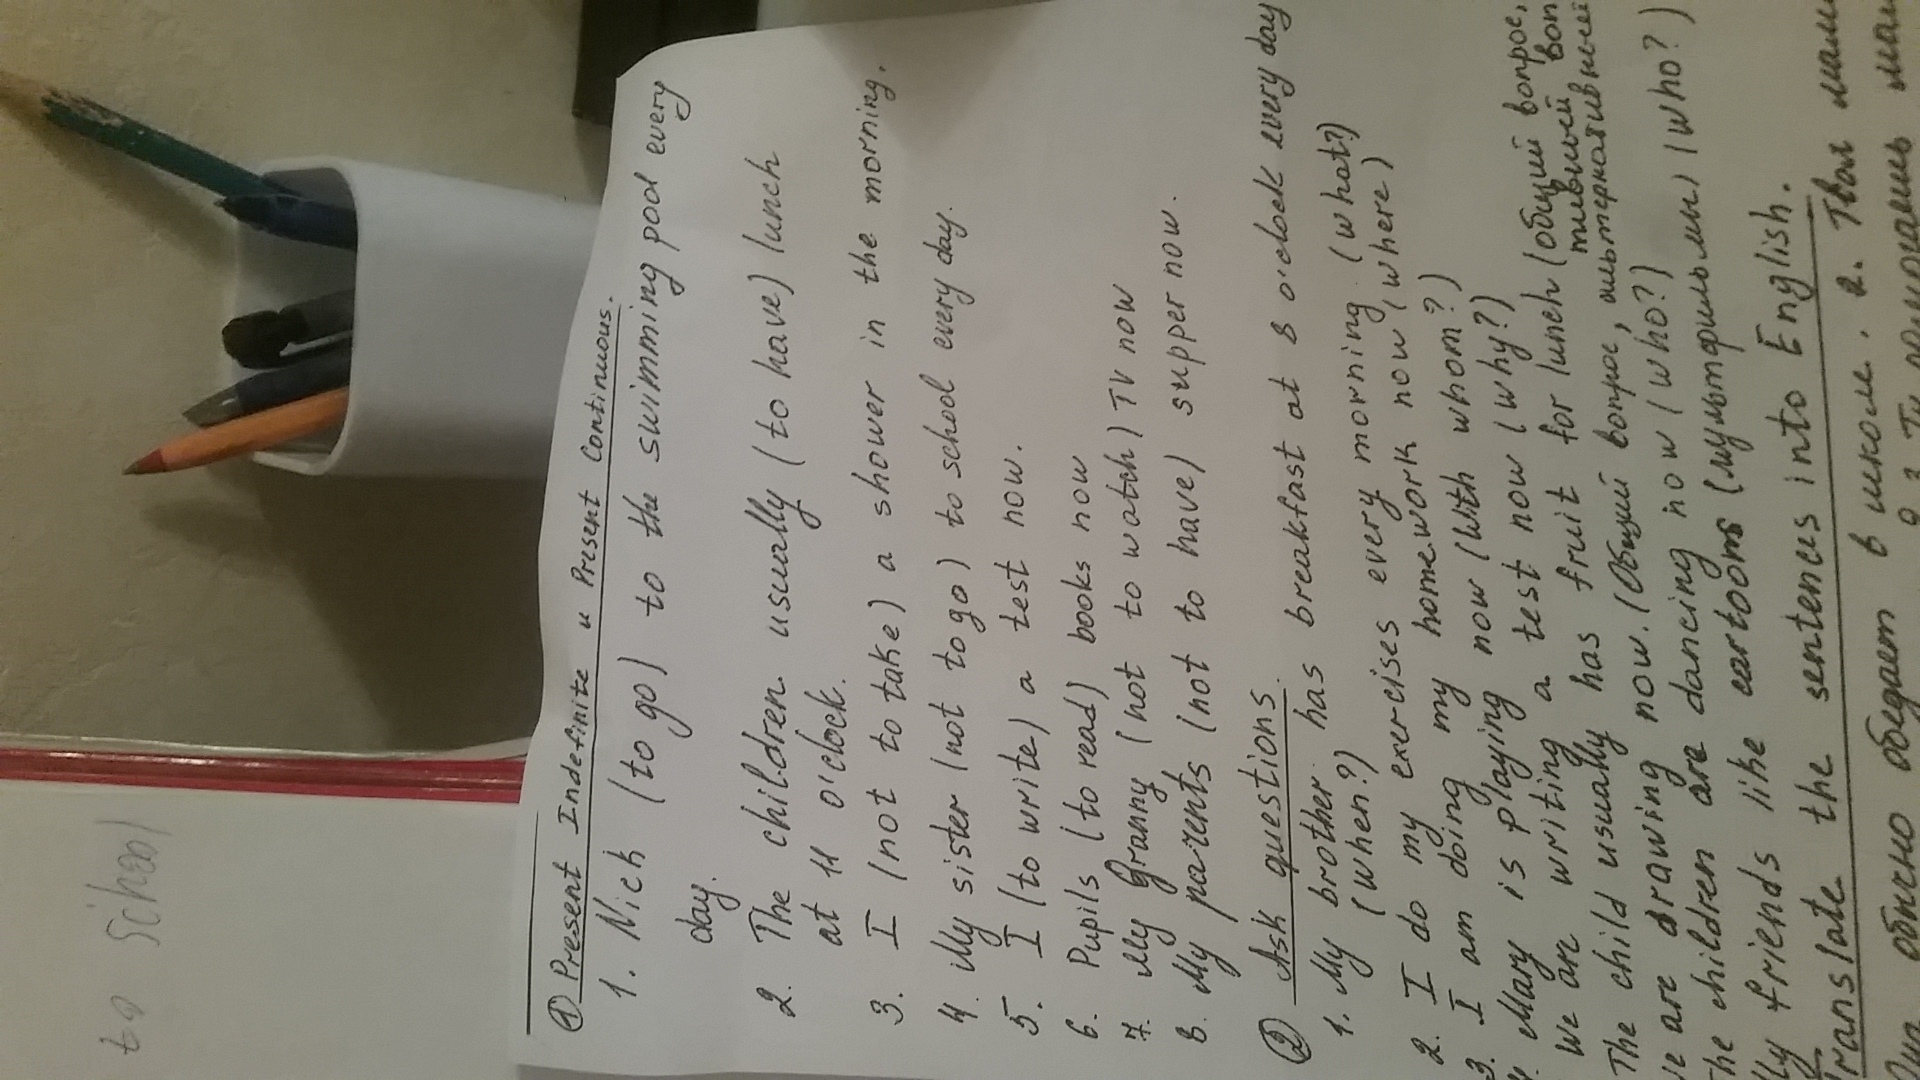 to School
① Present Indefinite и Present Continuous.
1. Nick (to go) to the swimming pool every
day.
2. The children usually (to have) lunch
at 11 o'clock.
3. I (not to take) a shower in the morning.
4. My sister (not to go) to school every day.
5. I (to write) a test now.
6. Pupils (to read) books now
7. My Granny (not to watch) TV now
8. My parents (not to have) supper now.
② Ask questions.
1. My brother has breakfast at 8 o'clock every day
(when?)
2. I do my exercises every morning. (what?)
3. I am doing my homework now (where)
Mary is playing now (with whom?)
We are writing a test now (why?)
The child usually has fruit for lunch (общий вопрос,
тивный воп
are drawing now. (Общий вопрос, альтернативный
the children are dancing now (who?)
My friends like cartooms (мультфильмы) (who?)
Translate the sentences into English.
обычно обедает в школе. 2. Твоя мам